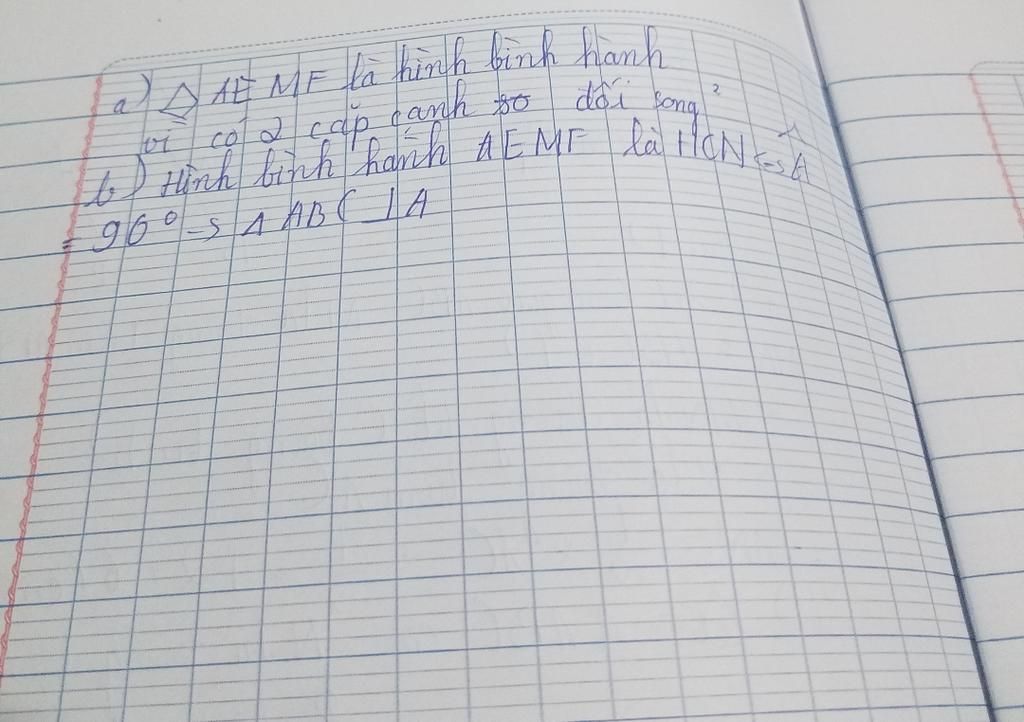 a) △ AEMF là hình bình hành
vì có 2 cặp cạnh so đối song²
b) Hình bình hành AEMF là HCN <=> Â
= 90° => Δ ABC ⊥ A